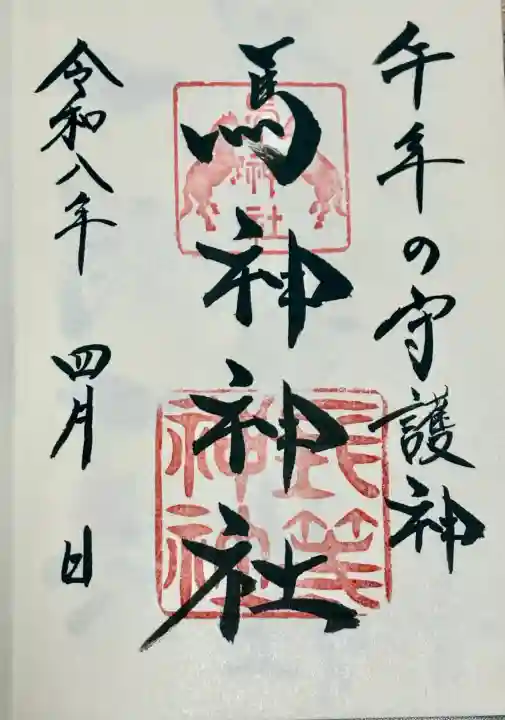 午年の守護神
馬神神社
令和八年 四月 日
長等
神社